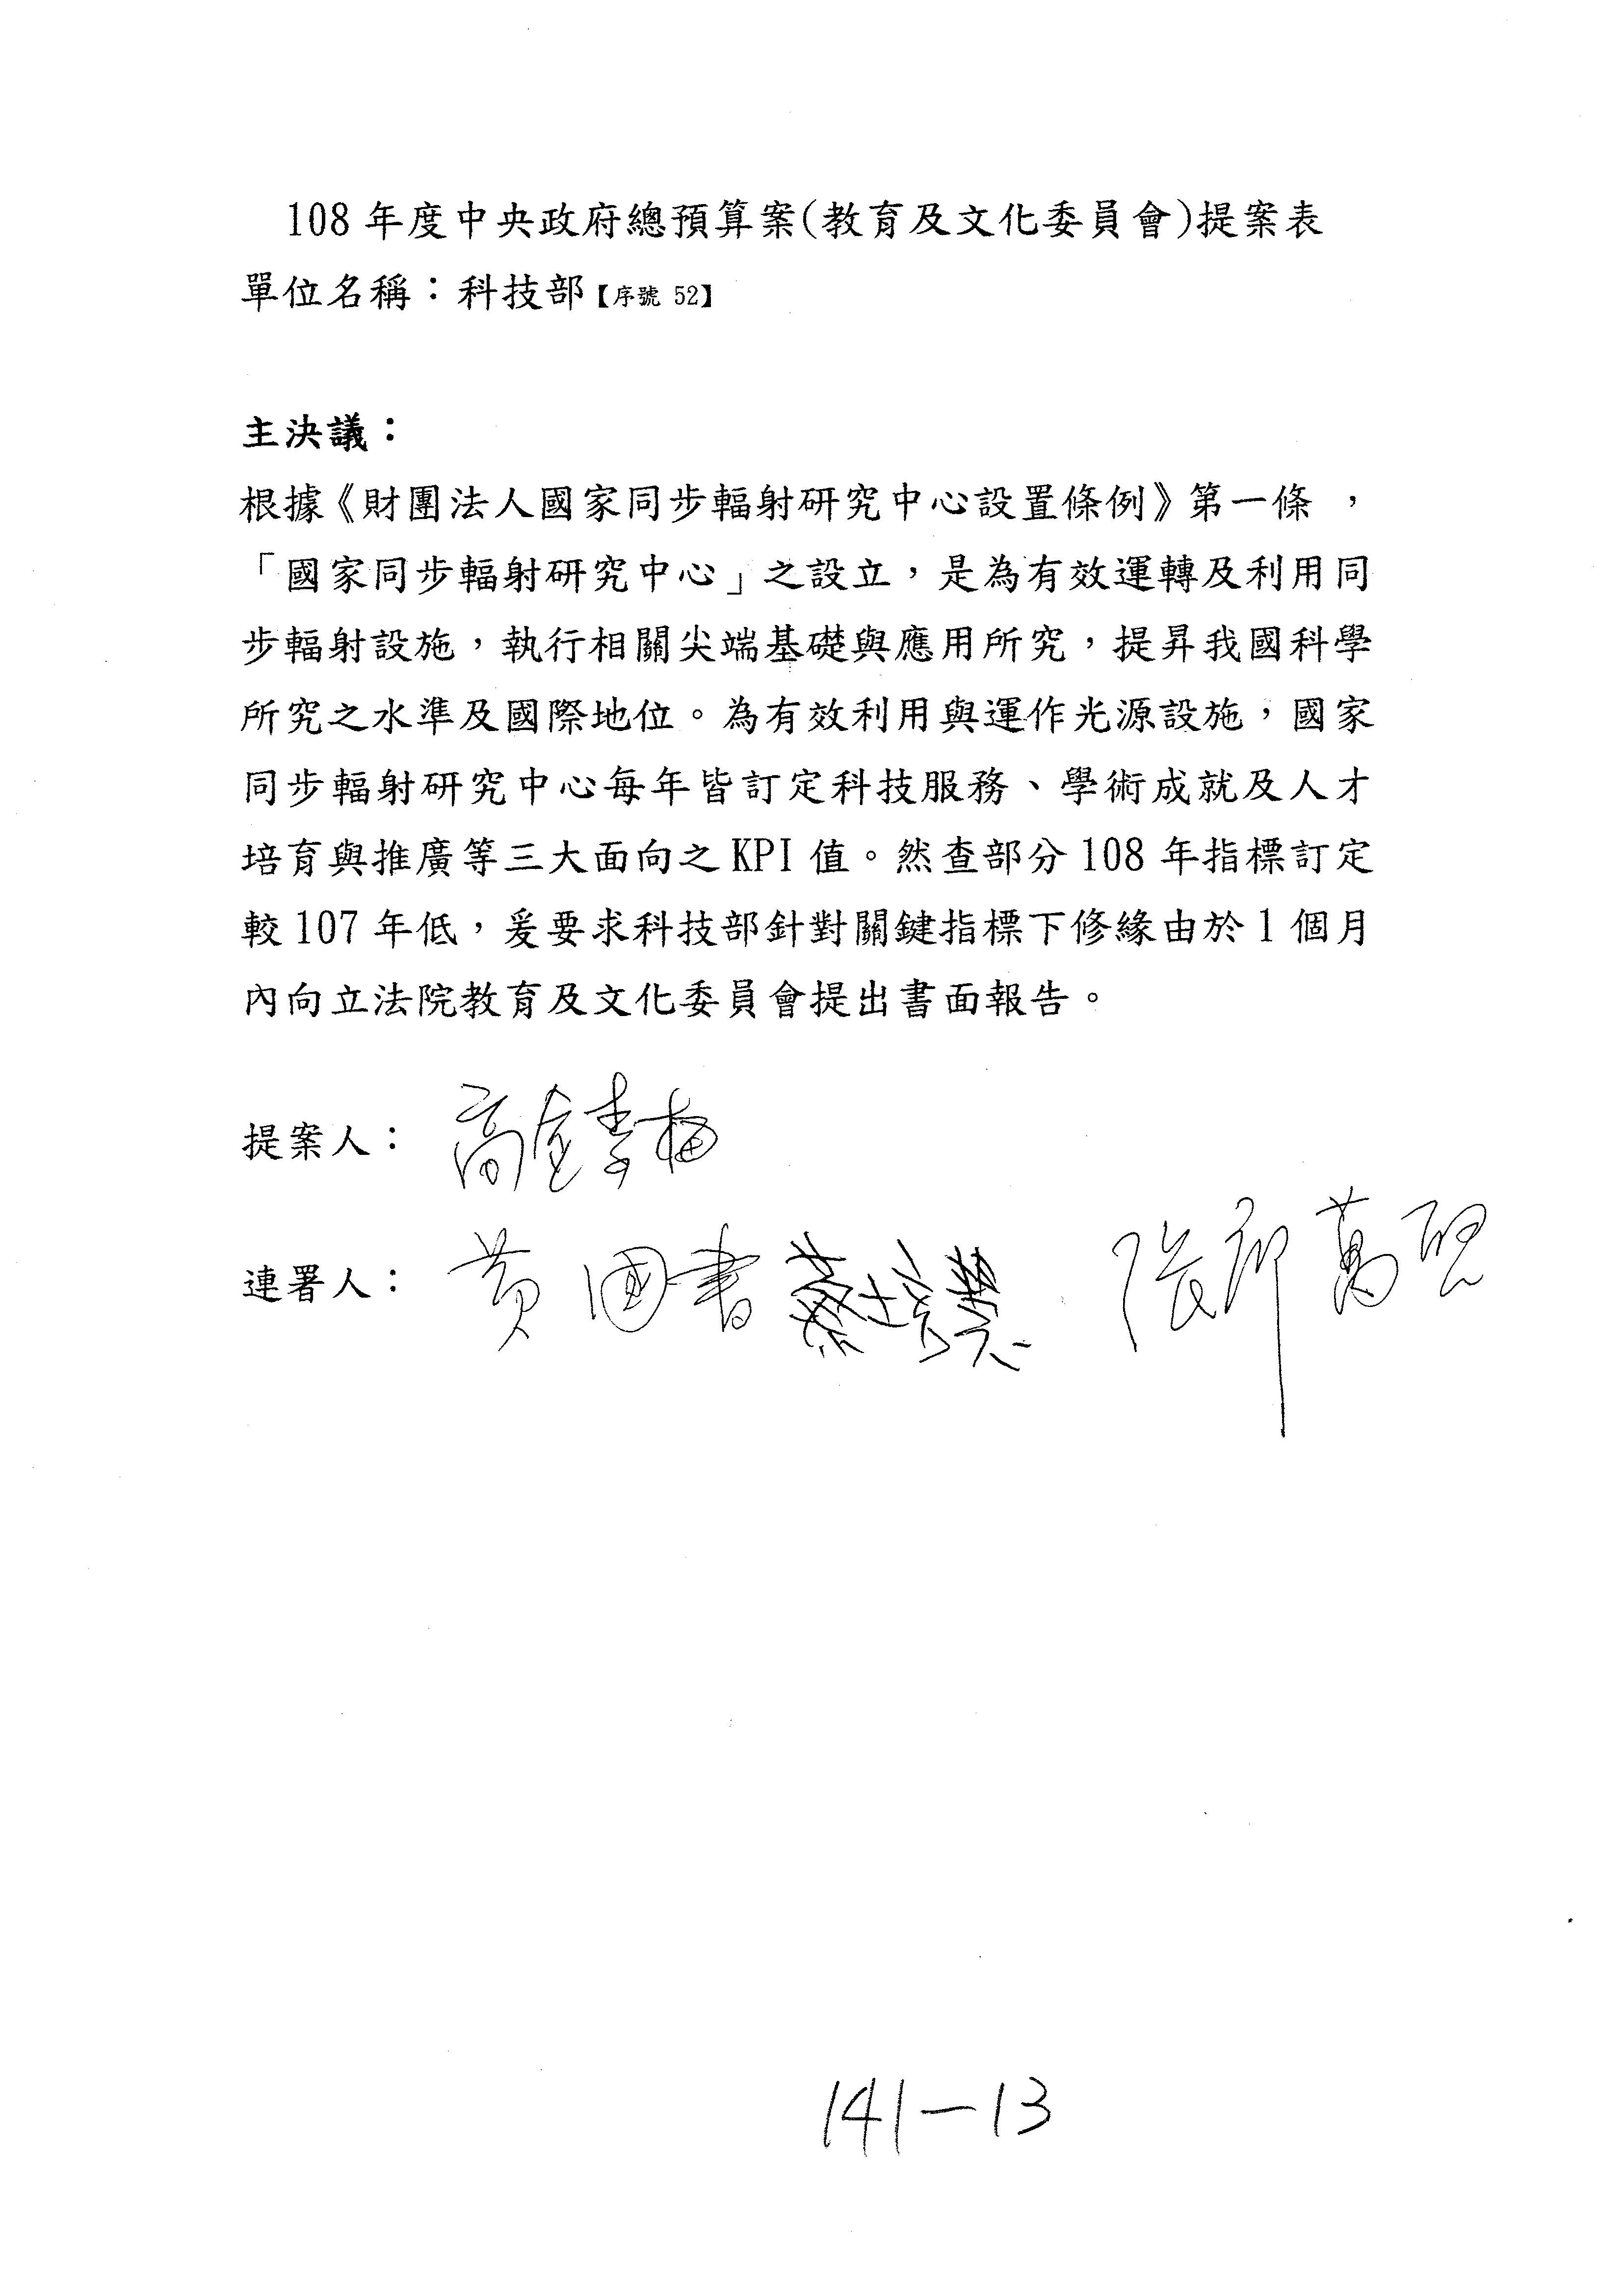 108 年度中央政府總預算案(教育及文化委員會)提案表
單位名稱：科技部【序號 52】
主決議：
根據《財團法人國家同步輻射研究中心設置條例》第一條 ，
「國家同步輻射研究中心」之設立，是為有效運轉及利用同
步輻射設施，執行相關尖端基礎與應用所究，提昇我國科學
所究之水準及國際地位。為有效利用與運作光源設施，國家
同步輻射研究中心每年皆訂定科技服務、學術成就及人才
培育與推廣等三大面向之 KPI 值。然查部分 108 年指標訂定
較 107 年低，爰要求科技部針對關鍵指標下修緣由於 1 個月
內向立法院教育及文化委員會提出書面報告。
提案人： 高金素梅
連署人： 黃國書 蔡培慧 張廖萬堅
141-13